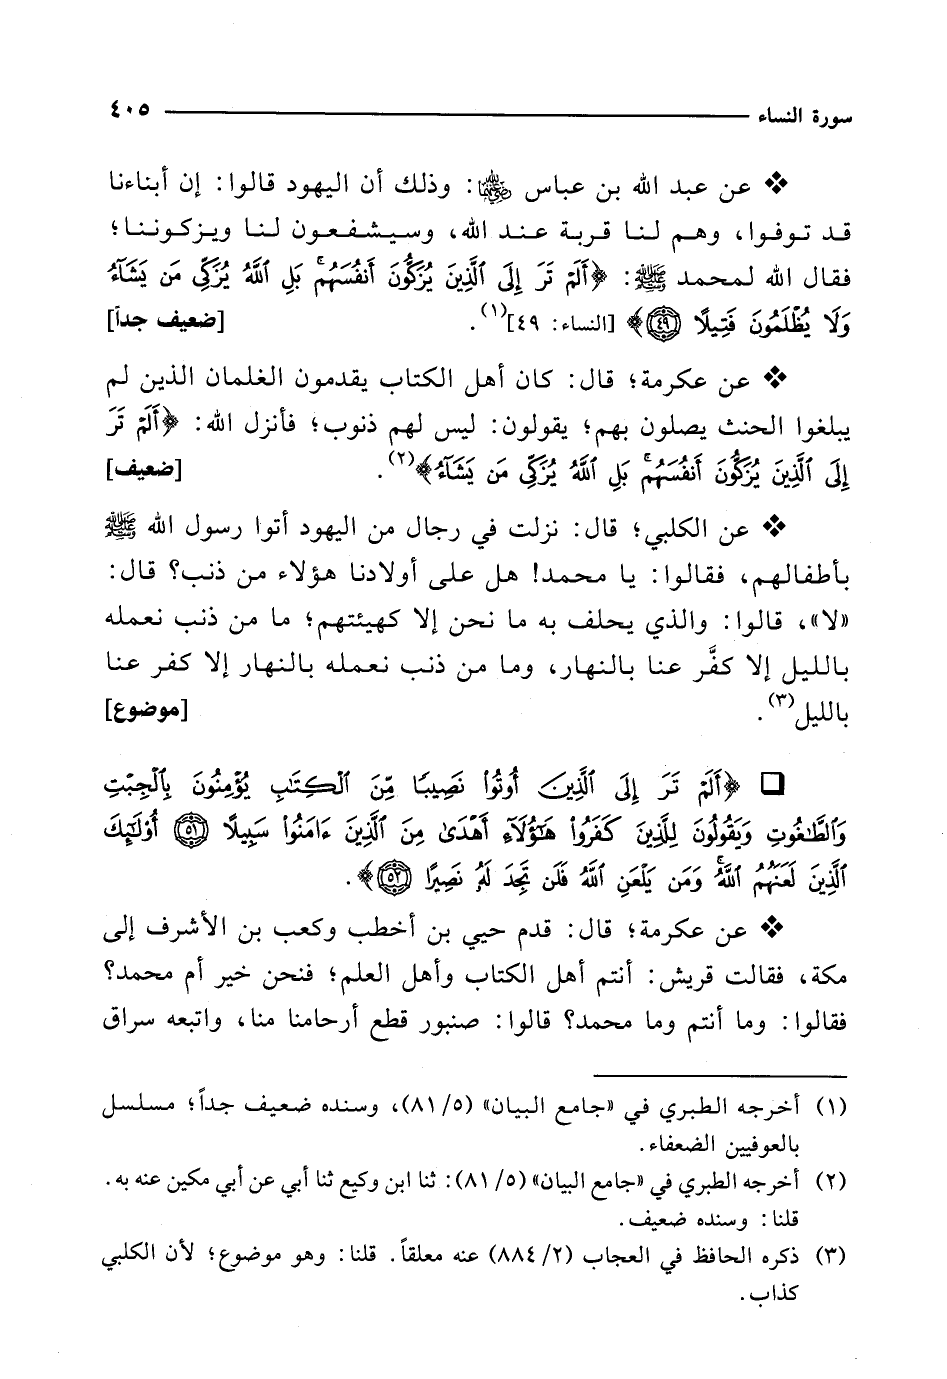 سورة النساء ٤٠٥
❖ عن عبد الله بن عباس ﵄: وذلك أن اليهود قالوا: إن أبناءنا
قد توفوا، وهم لنا قربة عند الله، وسيشفعون لنا ويزكوننا؛
فقال الله لمحمد ﷺ: ﴿أَلَمْ تَرَ إِلَى ٱلَّذِينَ يُزَكُّونَ أَنفُسَهُمۚ بَلِ ٱللَّهُ يُزَكِّى مَن يَشَآءُ
وَلَا يُظْلَمُونَ فَتِيلًا ۝٤٩﴾ [النساء: ٤٩](١). [ضعيف جداً]
❖ عن عكرمة؛ قال: كان أهل الكتاب يقدمون الغلمان الذين لم
يبلغوا الحنث يصلون بهم؛ يقولون: ليس لهم ذنوب؛ فأنزل الله: ﴿أَلَمْ تَرَ
إِلَى ٱلَّذِينَ يُزَكُّونَ أَنفُسَهُمۚ بَلِ ٱللَّهُ يُزَكِّى مَن يَشَآءُ﴾(٢). [ضعيف]
❖ عن الكلبي؛ قال: نزلت في رجال من اليهود أتوا رسول الله ﷺ
بأطفالهم، فقالوا: يا محمد! هل على أولادنا هؤلاء من ذنب؟ قال:
«لا»، قالوا: والذي يحلف به ما نحن إلا كهيئتهم؛ ما من ذنب نعمله
بالليل إلا كفَّر عنا بالنهار، وما من ذنب نعمله بالنهار إلا كفر عنا
بالليل(٣). [موضوع]
❑ ﴿أَلَمْ تَرَ إِلَى ٱلَّذِينَ أُوتُوا۟ نَصِيبًا مِّنَ ٱلْكِتَٰبِ يُؤْمِنُونَ بِٱلْجِبْتِ
وَٱلطَّٰغُوتِ وَيَقُولُونَ لِلَّذِينَ كَفَرُوا۟ هَٰٓؤُلَآءِ أَهْدَىٰ مِنَ ٱلَّذِينَ ءَامَنُوا۟ سَبِيلًا ۝٥١ أُو۟لَٰٓئِكَ
ٱلَّذِينَ لَعَنَهُمُ ٱللَّهُۖ وَمَن يَلْعَنِ ٱللَّهُ فَلَن تَجِدَ لَهُۥ نَصِيرًا ۝٥٢﴾.
❖ عن عكرمة؛ قال: قدم حيي بن أخطب وكعب بن الأشرف إلى
مكة، فقالت قريش: أنتم أهل الكتاب وأهل العلم؛ فنحن خير أم محمد؟
فقالوا: وما أنتم وما محمد؟ قالوا: صنبور قطع أرحامنا منا، واتبعه سراق
(١) أخرجه الطبري في «جامع البيان» (٥/ ٨١)، وسنده ضعيف جداً؛ مسلسل
بالعوفيين الضعفاء.
(٢) أخرجه الطبري في «جامع البيان» (٥/ ٨١): ثنا ابن وكيع ثنا أبي عن أبي مكين عنه به.
قلنا: وسنده ضعيف.
(٣) ذكره الحافظ في العجاب (٢/ ٨٨٤) عنه معلقاً. قلنا: وهو موضوع؛ لأن الكلبي
كذاب.